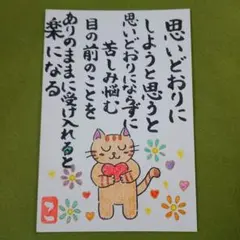 思いどおりに
しようと思うと
思いどおりにならずに
苦しみ悩む
目の前のことを
ありのままに受け入れると
楽になる